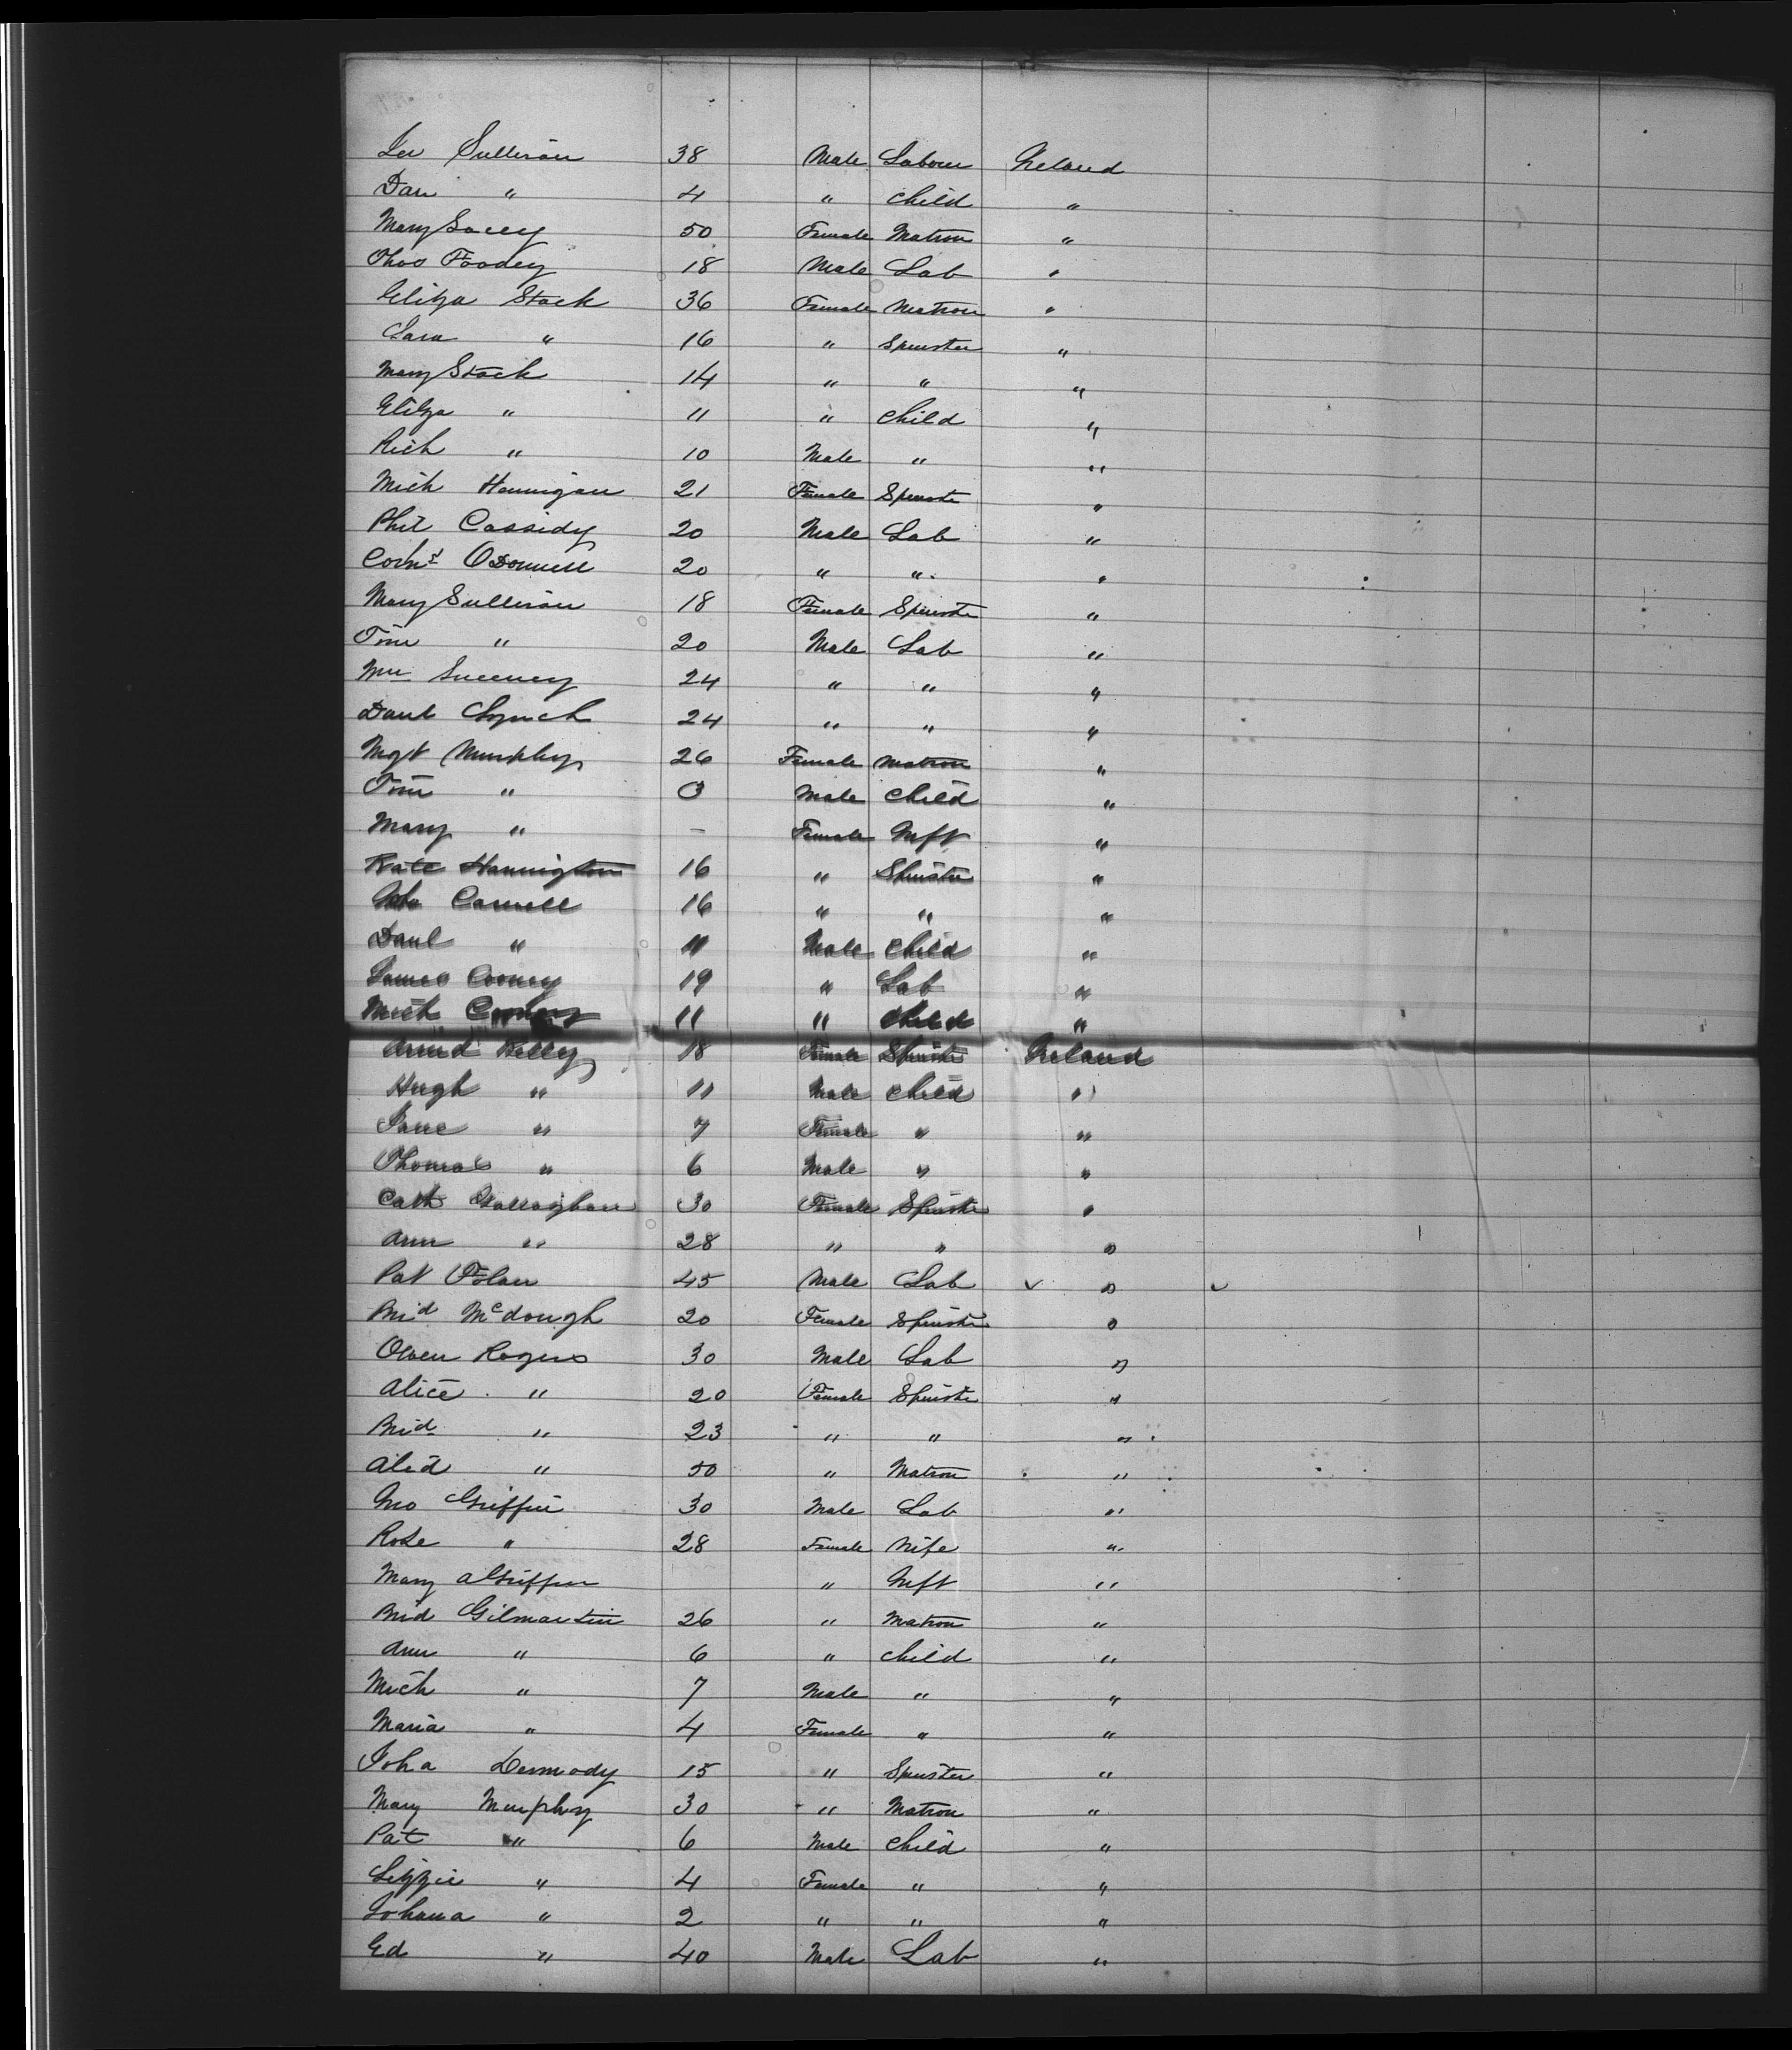 Jer Sullivan 38 Male Labour Ireland
Dan " 4 " Child "
Mary Lacey 50 Female Matron "
Thos Foodey 18 Male Lab "
Eliza Stack 36 Female Matron "
Sara " 16 " Spinster "
Mary Stack 14 " " "
Eliza " 11 " Child "
Rich " 10 Male " "
Mich Hannigan 21 Female Spinste "
Phil Cassidy 20 Male Lab "
Corns ODonnell 20 " " "
Mary Sullivan 18 Female Spinste "
Tim " 20 Male Lab "
Wm Sweeney 24 " " "
Danl Lynch 24 " " "
Mgt Murphy 26 Female Matron "
Tim " 3 Male Child "
Mary " - Female Inft "
Kate Hannington 16 " Spinster "
Carroll 16 " " "
Danl " 11 Male Child "
James Cooney 19 " Lab "
Mich Cooney 11 " Child "
Kelly 18 Female Spinste Ireland
Hugh " 11 Male Child "
Jane " 7 Female " "
Thomas " 6 Male " "
Cath Gallaghan 30 Female Spinste "
Ann " 28 " " "
Pat Folan 45 Male Lab "
Brid McDough 20 Female Spinste "
Owen Rogers 30 Male Lab "
Alice " 20 Female Spinste "
Brid " 23 " " "
" 50 " Matron "
Jno Griffin 30 Male Lab "
Rose " 28 Female Wife "
Mary A Griffin " Inft "
Brid Gilmartin 26 " Matron "
Ann " 6 " Child "
Mich " 7 Male " "
Maria " 4 Female " "
Joha Dermody 15 " Spinster "
Mary Murphy 30 " Matron "
Pat " 6 Male Child "
Lizzie " 4 Female " "
Johana " 2 " " "
Ed " 40 Male Lab "